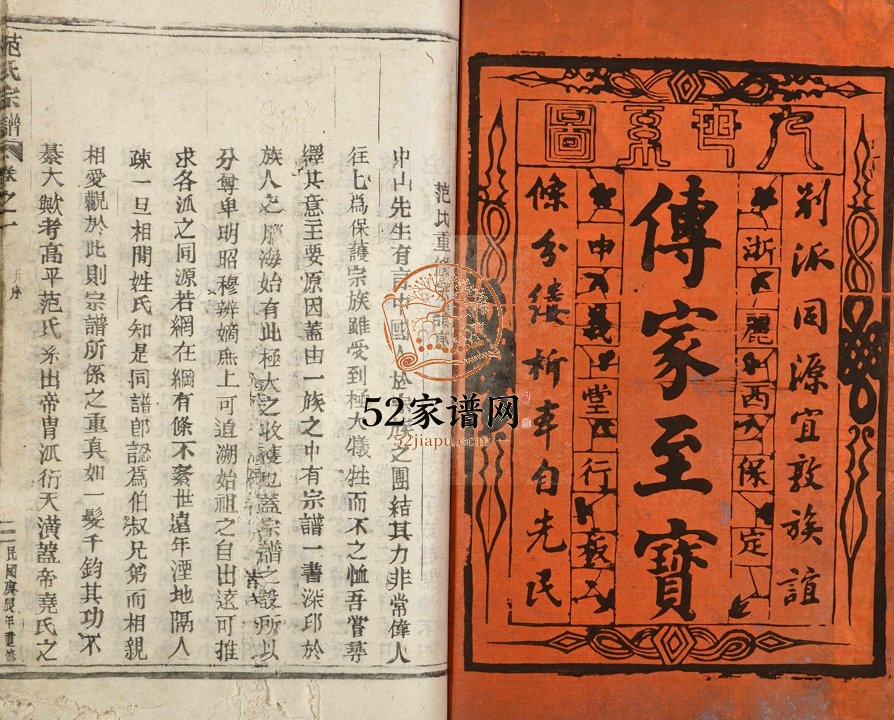 九世系圖
別派同源宜敦族誼
浙麗西保定
傳家至寶
申義堂行
條分縷析率自先民
范氏重修
中山先生有言中國人於
之團結其力非常偉人
往七爲保護宗族雖受到極大犧牲而不之恤吾嘗尋
繹其意主要原因蓋由一族之中有宗譜一書深印於
族人之腦海始有此極大之收獲也蓋宗譜之設所以
分尊卑明昭穆辨嫡庶上可追溯始祖之自出遠可推
求各派之同源若網在綱有條不紊世遠年湮地隔人
疎一旦相聞姓氏知是同譜卽認爲伯叔兄弟而相親
相愛觀於此則宗譜所係之重真如一髮千鈞其功不
綦大歟考高平范氏系出帝胄派衍天潢蓋帝堯氏之
范氏宗譜
卷之一
序
民國庚辰年重修
52家谱网
52jiapu.com